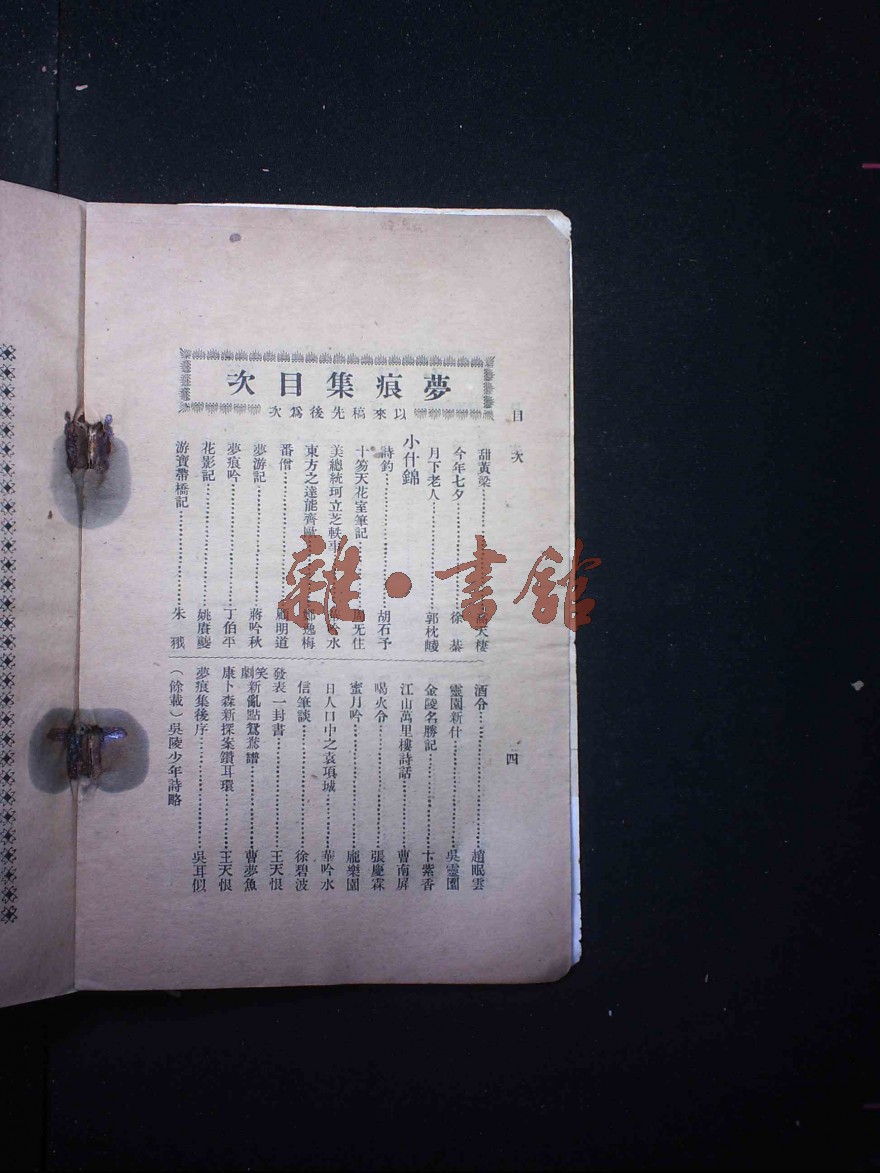 目次
四
夢痕集目次
以來稿先後爲次
甜黃梁 天棲
今年七夕 徐
月下老人 郭枕
小什錦
詩鈞 胡石予
十笏天花室筆記 周无住
美總統珂立芝軼事 吟水
東方之達能齊 逸梅
番僧 顧明道
夢游記 蔣吟秋
夢痕吟 丁伯平
花影記 姚賡夔
游寶帶橋記 朱
酒令 趙眠雲
靈園新什 吳靈園
金陵名勝記 卞紫香
江山萬里樓詩話 曹南屏
喝火令 張慶霖
蜜月吟 龐樂園
日人口中之袁項城 華吟水
信筆談 徐碧波
發表一封書 王天恨
笑劇新亂點鴛鴦譜 曹夢魚
康卜森新探案鑽耳環 王天恨
夢痕集後序 吳耳似
(餘載)吳陵少年詩略
雜·書館